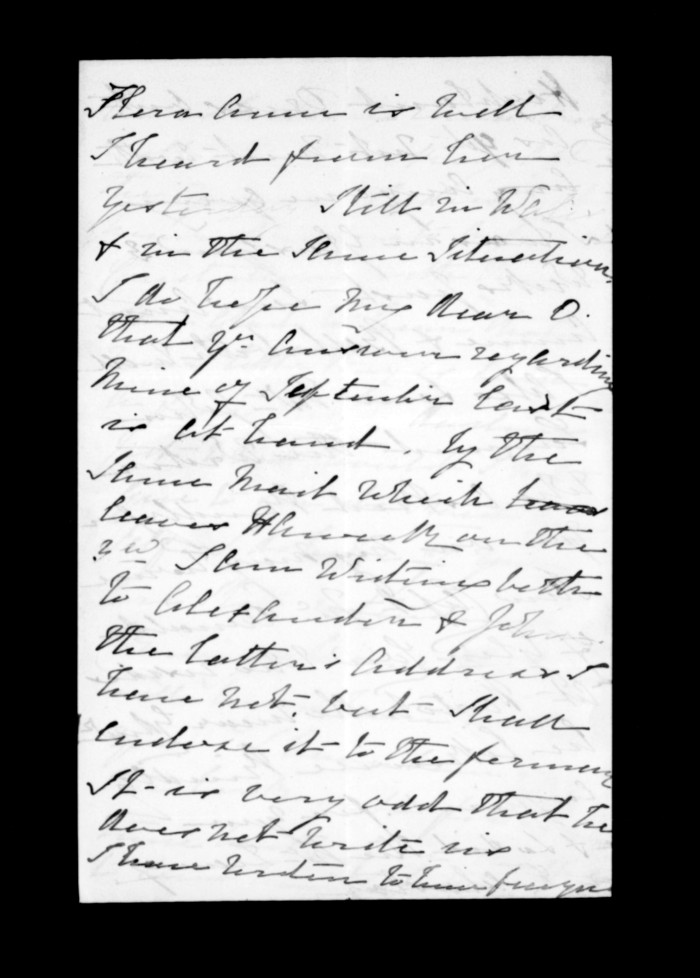 Flora Anne is well
I heard from her
yesterday Still in Wa
& in the Same Situation.
I do hope My dear D.
that yr. answer regarding
Mine of September last
is at hand. By the
Same Mail which
leaves Harwich on the
3rd I am Writing both
to Alexander & John.
the latter's address I
have not, but Shall
enclose it to the former
It is very odd that he
does not Write us
I have written to him